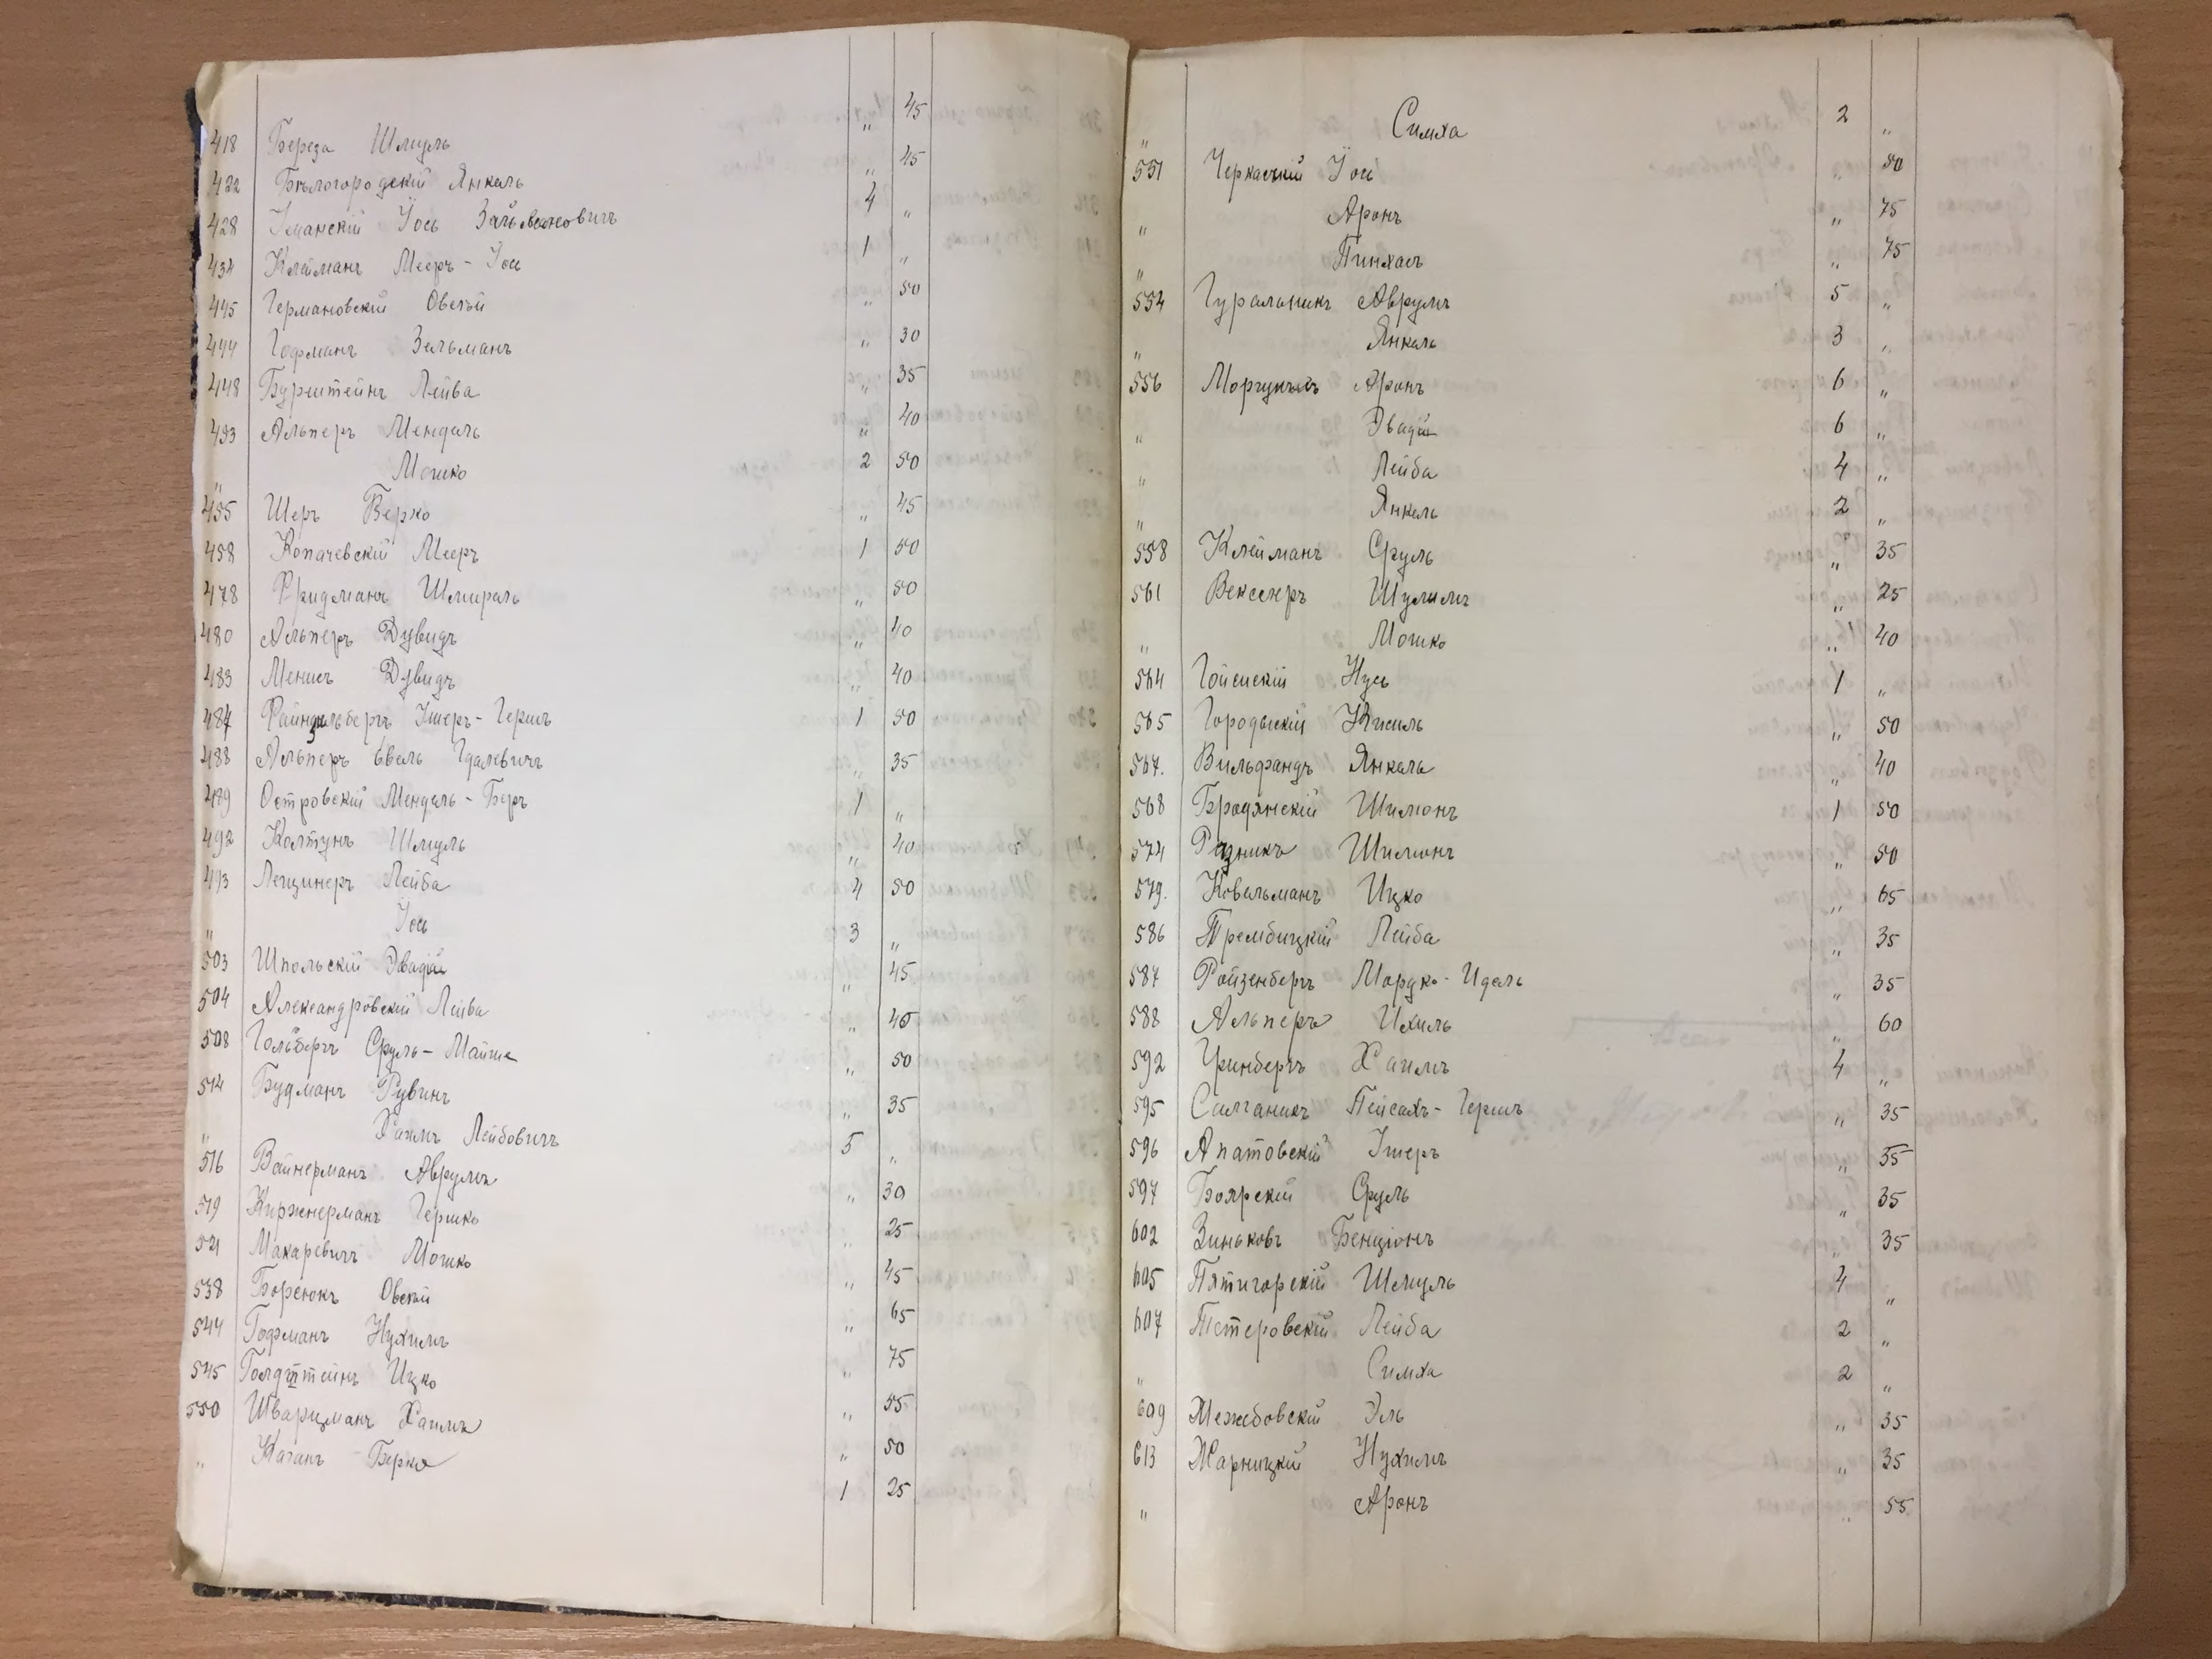 418 Береза Шмуль „ 45
422 Бѣлогородскій Янкель „ 45
428 Уманскій Іось Зайвелевовичъ 4 „
434 Клейманъ Мееръ-Іось 1 „
445 Германовскій Овсѣй „ 50
444 Гофманъ Зельманъ „ 30
448 Бурштейнъ Лейба „ 35
453 Альперъ Мендель „ 40
„ Мошко 2 50
455 Шеръ Берко „ 45
458 Копачевскій Мееръ 1 50
478 Фридманъ Шмираль „ 50
480 Альперъ Дувидъ „ 40
483 Менисъ Дувидъ „ 40
484 Файнзильбергъ Ушеръ-Гершъ 1 50
488 Альперъ Евель Гдалевичъ „ 35
489 Островскій Мендель-Беръ 1 „
492 Колтунъ Шмуль „ 40
493 Лецинеръ Лейба 4 50
„ Іось 3 „
503 Шпольскій Эвадій „ 45
504 Александровскій Лейба „ 45
508 Гольбергъ Сруль-Майше „ 50
514 Будманъ Рувинъ „ 35
„ Хаимъ Лейбовичъ 5 „
516 Вайнерманъ Аврумъ „ 30
519 Киржнерманъ Гершко „ 25
521 Макаревичъ Мошко „ 45
538 Борсюкъ Овсѣй „ 65
544 Гофманъ Нухимъ „ 75
545 Голдштейнъ Ицко „ 55
550 Шварцманъ Хаимъ „ 50
„ Каганъ Берко 1 25
„ Симха 2 „
551 Черкаскій Іось „ 50
„ Аронъ „ 75
„ Пинхасъ „ 75
554 Гуральникъ Аврумъ 5 „
„ Янкель 3 „
556 Аронъ 6 „
„ Эвадій 6 „
„ Лейба 4 „
„ Янкель 2 „
558 Клейманъ Сруль „ 35
561 Векслеръ Шулимъ „ 25
„ Мошко „ 40
564 Гойсискій Нусь 1 „
565 Городыскій Кисиль „ 50
567. Вильфандъ Янкель „ 40
568 Бродянскій Шимонъ 1 50
574 Рѣзникъ Шимонъ „ 50
579. Ковальманъ Ицко „ 65
586 Трембицкій Лейба „ 35
587 Ройзенбергъ Мордко-Идель „ 35
588 Альперъ Ихиль „ 60
592 Гринбергъ Хаимъ 4 „
595 Салганикъ Пейсахъ-Гершъ „ 35
596 Апатовскій Ушеръ „ 35
597 Боярскій Сруль „ 35
602 Зиньковъ Бенціонъ „ 35
605 Пятигорскій Шмуль 4 „
607 Тетеровскій Лейба 2 „
„ Симха 2 „
609 Межебовскій Эль „ 35
613 Жарницкій Нухимъ „ 35
„ Аронъ „ 55